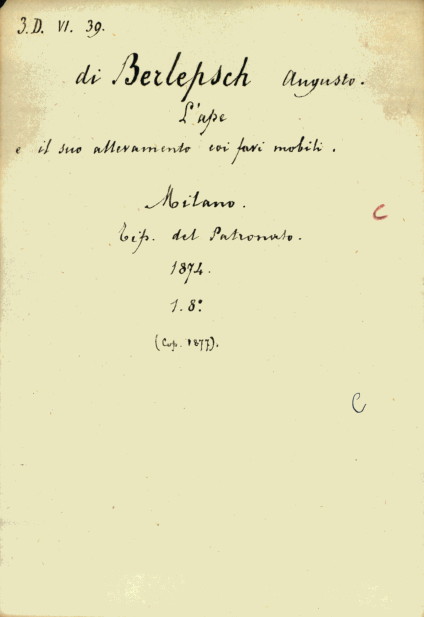 3.D. VI. 39.
di Berlepsch Augusto.
L'ape
e il suo allevamento coi favi mobili.
Milano.
Tip. del Patronato.
1874.
1. 8º.
(Cop. 1877).
C
C